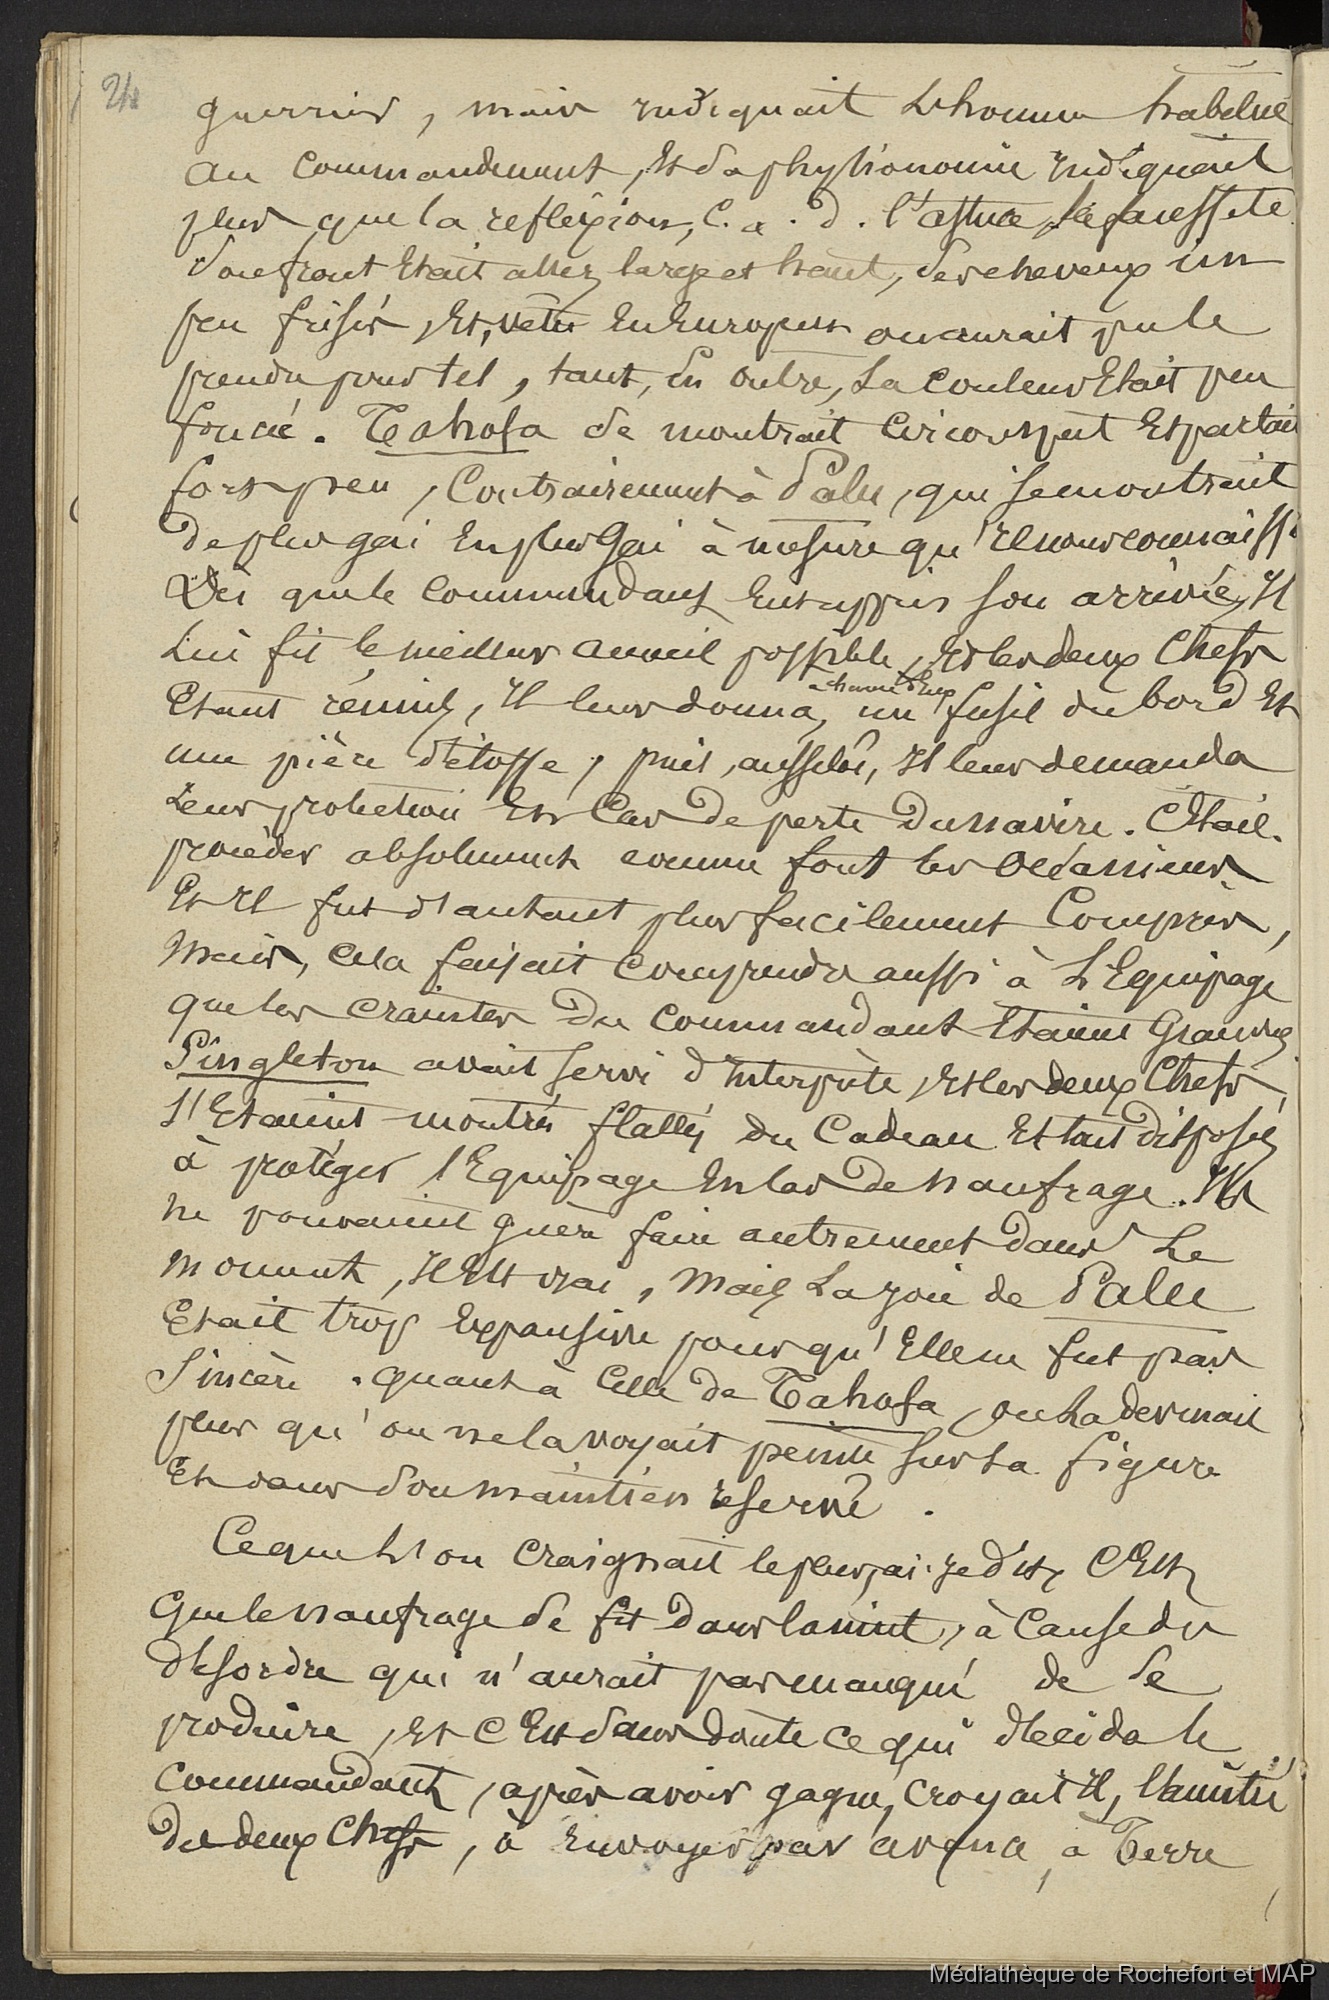 24
guerrier, mais indiquait L'homme habitué
au Commandement, Et sa physionomie indiquait
plus que la reflexion, C. a. d. l'astuce, la fausseté
Son front Etait assez large et haut, ses cheveux un
peu frisés, Et, vêtu En Européen on aurait pu le
prendre pour tel, tant, En outre, Sa Couleur Etait peu
foncée. Tahofa se montrait Circonspect Et parlait
fort peu, Contrairement à Palu, qui se montrait
de plus gai En plus Gai à mesure qu'Il nous connaiss
Dès que le Commandant Eut appris son arrivée, Il
Lui fit le meilleur accueil possible, Et les deux Chefs
à chacun d'Eux
Etant réunis, Il leur donna, un fusil du bord Et
une pièce d'étoffe, puis, aussitôt, Il leur demanda
Leur protection En Cas de perte du navire. C'Etait
procéder absolument comme font les Océaniens
Et Il fut d'autant plus facilement Compris,
Mais, cela faisait comprendre aussi à L'Equipage
que les craintes Du Commandant Etaient Grandes
Singleton avait servi d'Interprète, Et les deux Chefs,
s'Etaient montrés flattés du Cadeau Et tout disposés
à protéger l'Equipage En Cas de naufrage. Ils
ne pouvaient guère faire autrement dans Le
moment, Il Est vrai, Mais La joie de Palu
Etait trop Expansive pour qu'Elle ne fut pas
Sincère. quant à Celle de Tahofa, on La devinait
plus qu'on ne la voyait peinte sur sa figure
Et dans son maintien réservé.
Ce que L'on Craignait le plus, ai-je dit, C'Est
Que le naufrage se fit Dans la nuit, à Cause du
désordre qui n'aurait pas manqué de se
produire, Et C'Est sans doute ce qui décida le
Commandant, après avoir gagné, Croyait Il, l'amitié
des deux Chefs, à Envoyer par avance, à Terre
Médiathèque de Rochefort et MAP